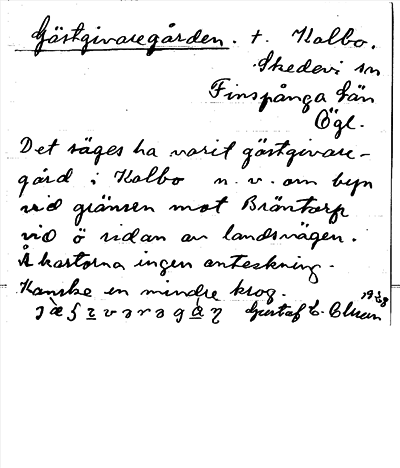 Gästgivaregården. t. Kolbo.
Skedevi sn
Finspånga län
Ögl.
Det säges ha varit gästgivare-
gård i Kolbo n. v. om byn
vid gränsen mot Bräntorp
vid ö sidan av landsvägen.
Å kartorna ingen anteckning.
Kanske en mindre krog.
Gustaf E. Olsson